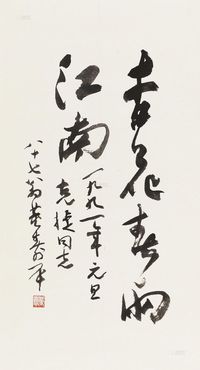 杏花春雨
江南
一九九一年元旦
克捷同志
八十七翁董寿平